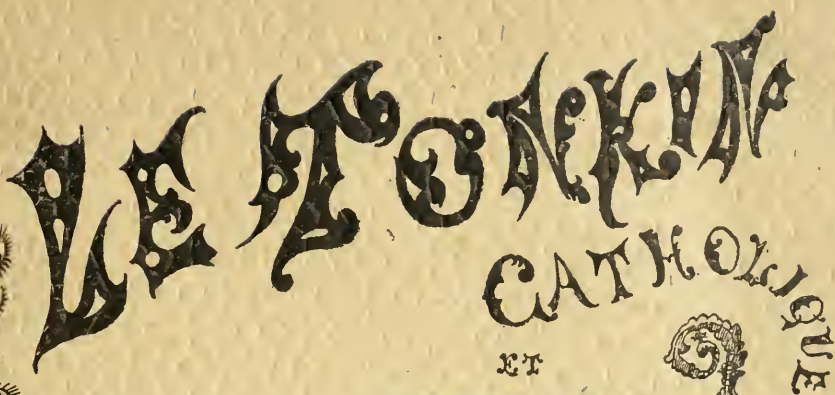 LE TONKIN
CATHOLIQUE
ET